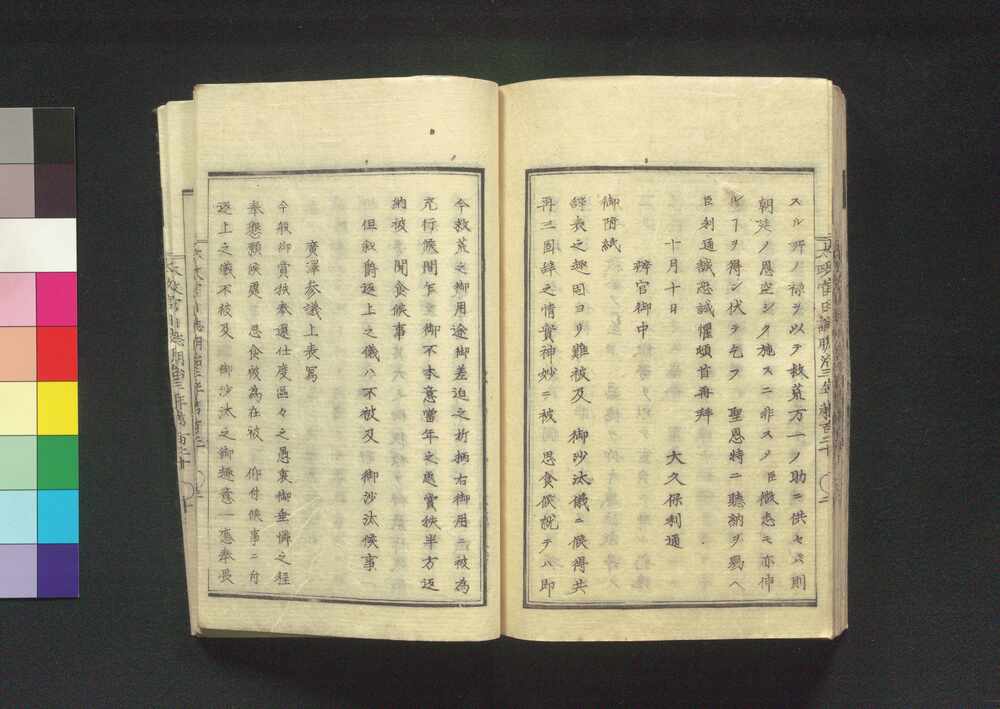 スル所ノ禄ヲ以テ救荒万一ノ助ニ供セハ則
朝廷ノ恩空シク施スニ非スメ臣微志モ亦伸
ルヿヲ得ン伏テ乞フ 聖恩特ニ聴納ヲ賜ヘ
臣利通誠恐誠懼頓首再拝
十月十日 大久保利通
辨官御中
御附紙
経表之趣固ヨリ難被及 御沙汰儀ニ候得共
再三固辞之情實神妙ニ被 思食候就テハ即
今救荒之御用途御差迫之折柄右御用ニ被為
充行候間乍 御不本意當年之惠賞秩半方返
納被 聞食候事
但叙爵返上之儀ハ不被及 御沙汰候事
廣澤参議上表寫
今般御賞秩奉還仕度區々之愚衷御垂憐之程
奉懇願候處 思食被為在被 仰付候事ニ付
返上之儀不被及 御沙汰之御趣意一應奉長
太政官日誌明治三年